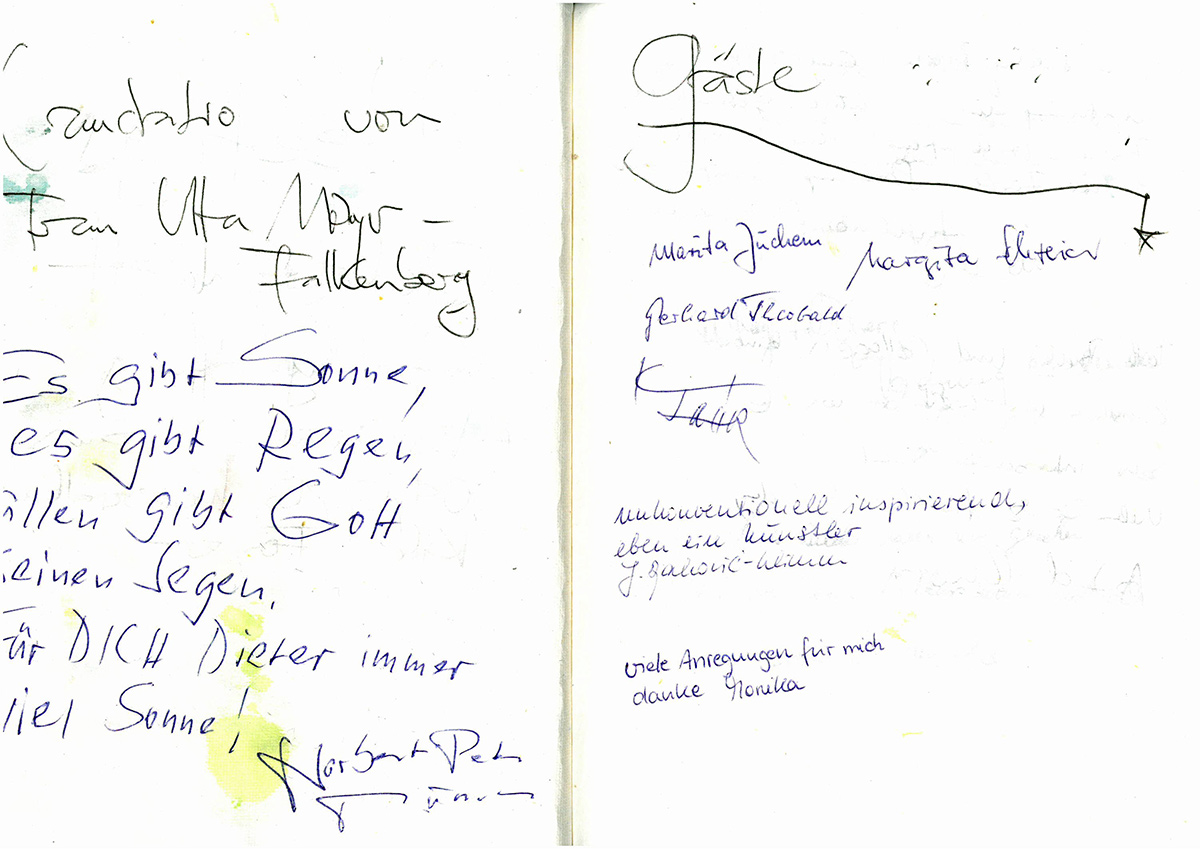 Laudatio von
Frau Utta Mayr-
Falkenberg
Es gibt Sonne,
es gibt Regen,
allen gibt Gott
seinen Segen,
Für DICH Dieter immer
viel Sonne!
Norbert Peter
Gäste
Marita Jüchem Margita
Gerhard Theobald
K.
unkonventionell inspirierend,
eben ein Künstler
viele Anregungen für mich
danke Monika